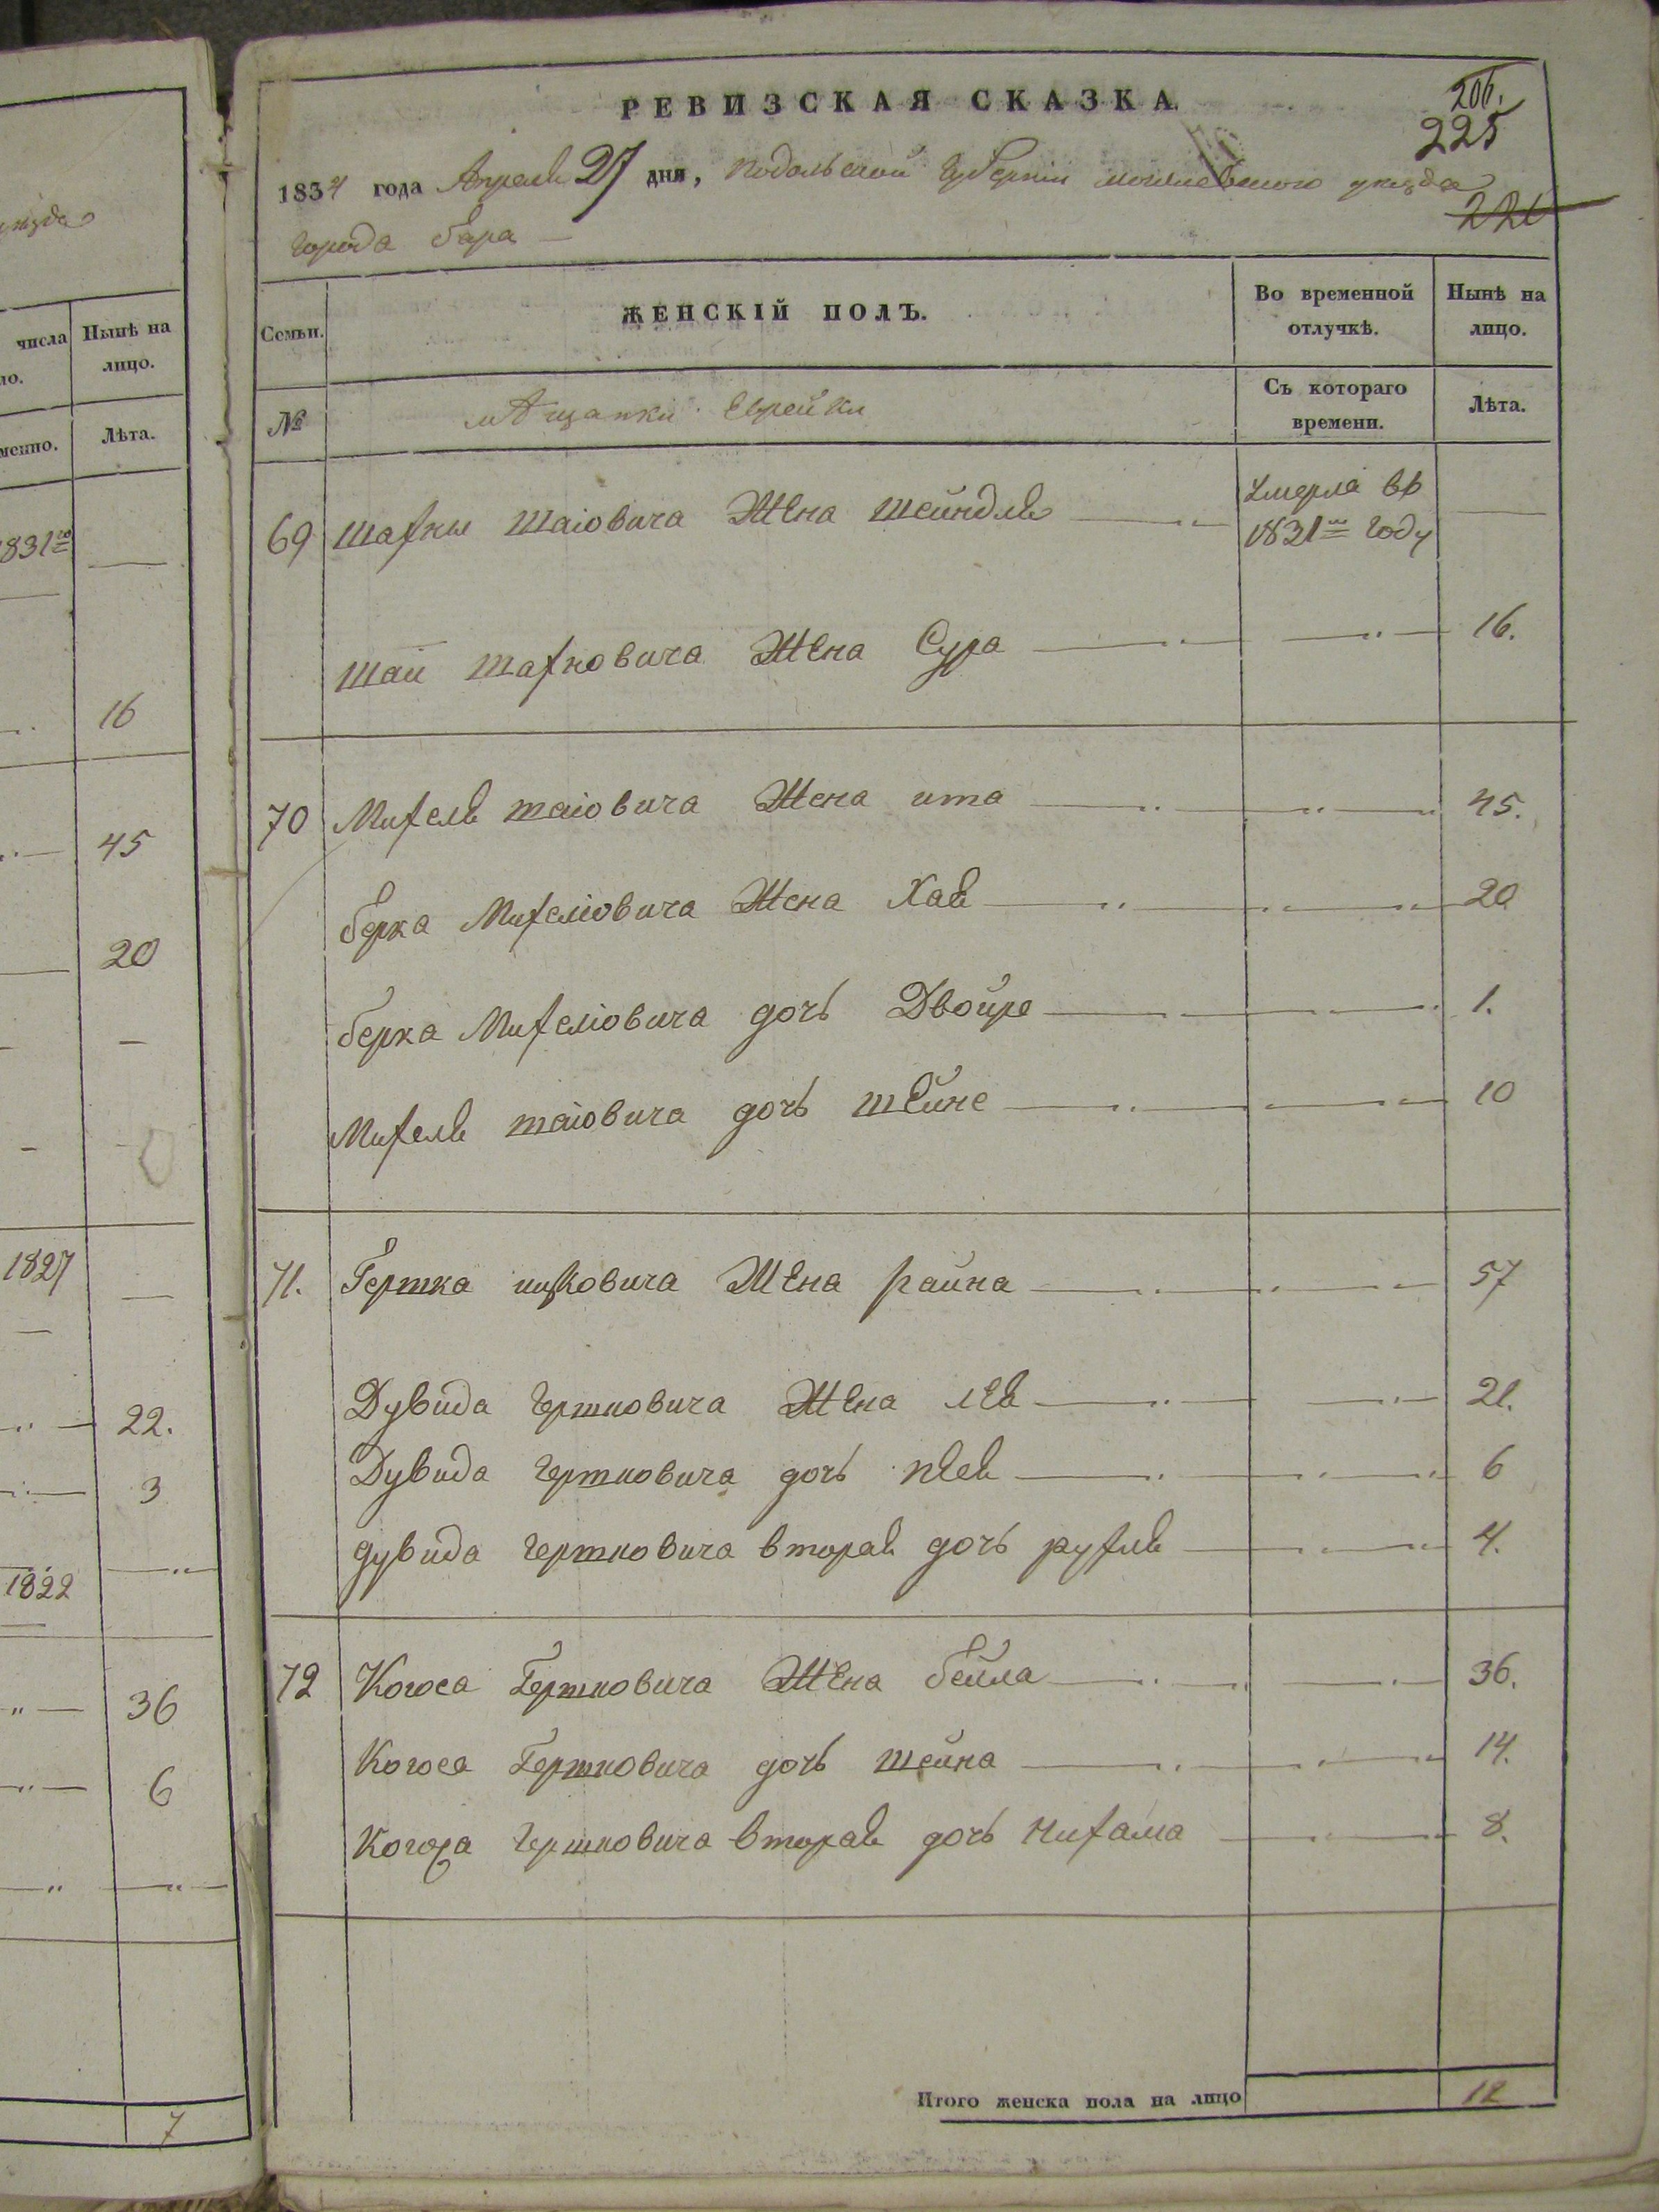 уезда
числа
Нынѣ на
лицо.
Лѣта.
1831го
16
45
20
1827
22.
3
1822
36
6
7
РЕВИЗСКАЯ СКАЗКА.
206.
225
1834 года Апреля 27 дня, Подольской Губерніи могилевского уезда
221
города бара
Семьи.
ЖЕНСКІЙ ПОЛЪ.
Во временной
отлучкѣ.
Нынѣ на
лицо.
№
мѣщанки Еврейки
Съ котораго
времени.
Лѣта.
69 Шахны Шаіовича Жена Шейндля умерла въ
1831м году
Шаи Шахновича Жена Сура 16.
70 Михеля шаіовича Жена ита 45.
берка Михеліовича Жена Хая 20
берка Михеліовича дочь Двойре 1.
Михеля шаіовича дочь шейне 10
71. Гершка ицковича Жена райна 57
Дувида гершковича Жена лея 21.
Дувида гершковича дочь 6
дувида гершковича вторая дочь рухля 4.
72 Когоса Гершковича Жена бейла 36.
Когоса Гершковича дочь шейна 14.
Когоса гершковича вторая дочь Нихама 8.
Итого женска пола на лицо 12